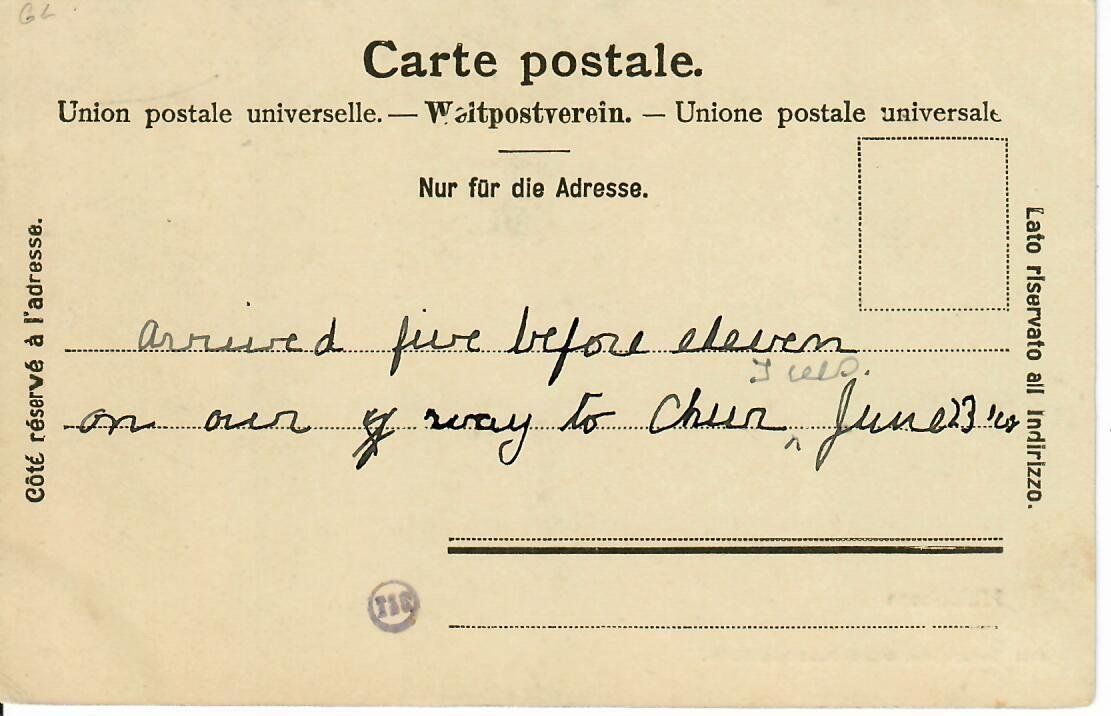 GL
Carte postale.
Union postale universelle. — Weltpostverein. — Unione postale universale
Nur für die Adresse.
Côté réservé à l'adresse.
Lato riservato all indirizzo.
arrived five before eleven
Tues.
on our way to Chur ^ June 23 '